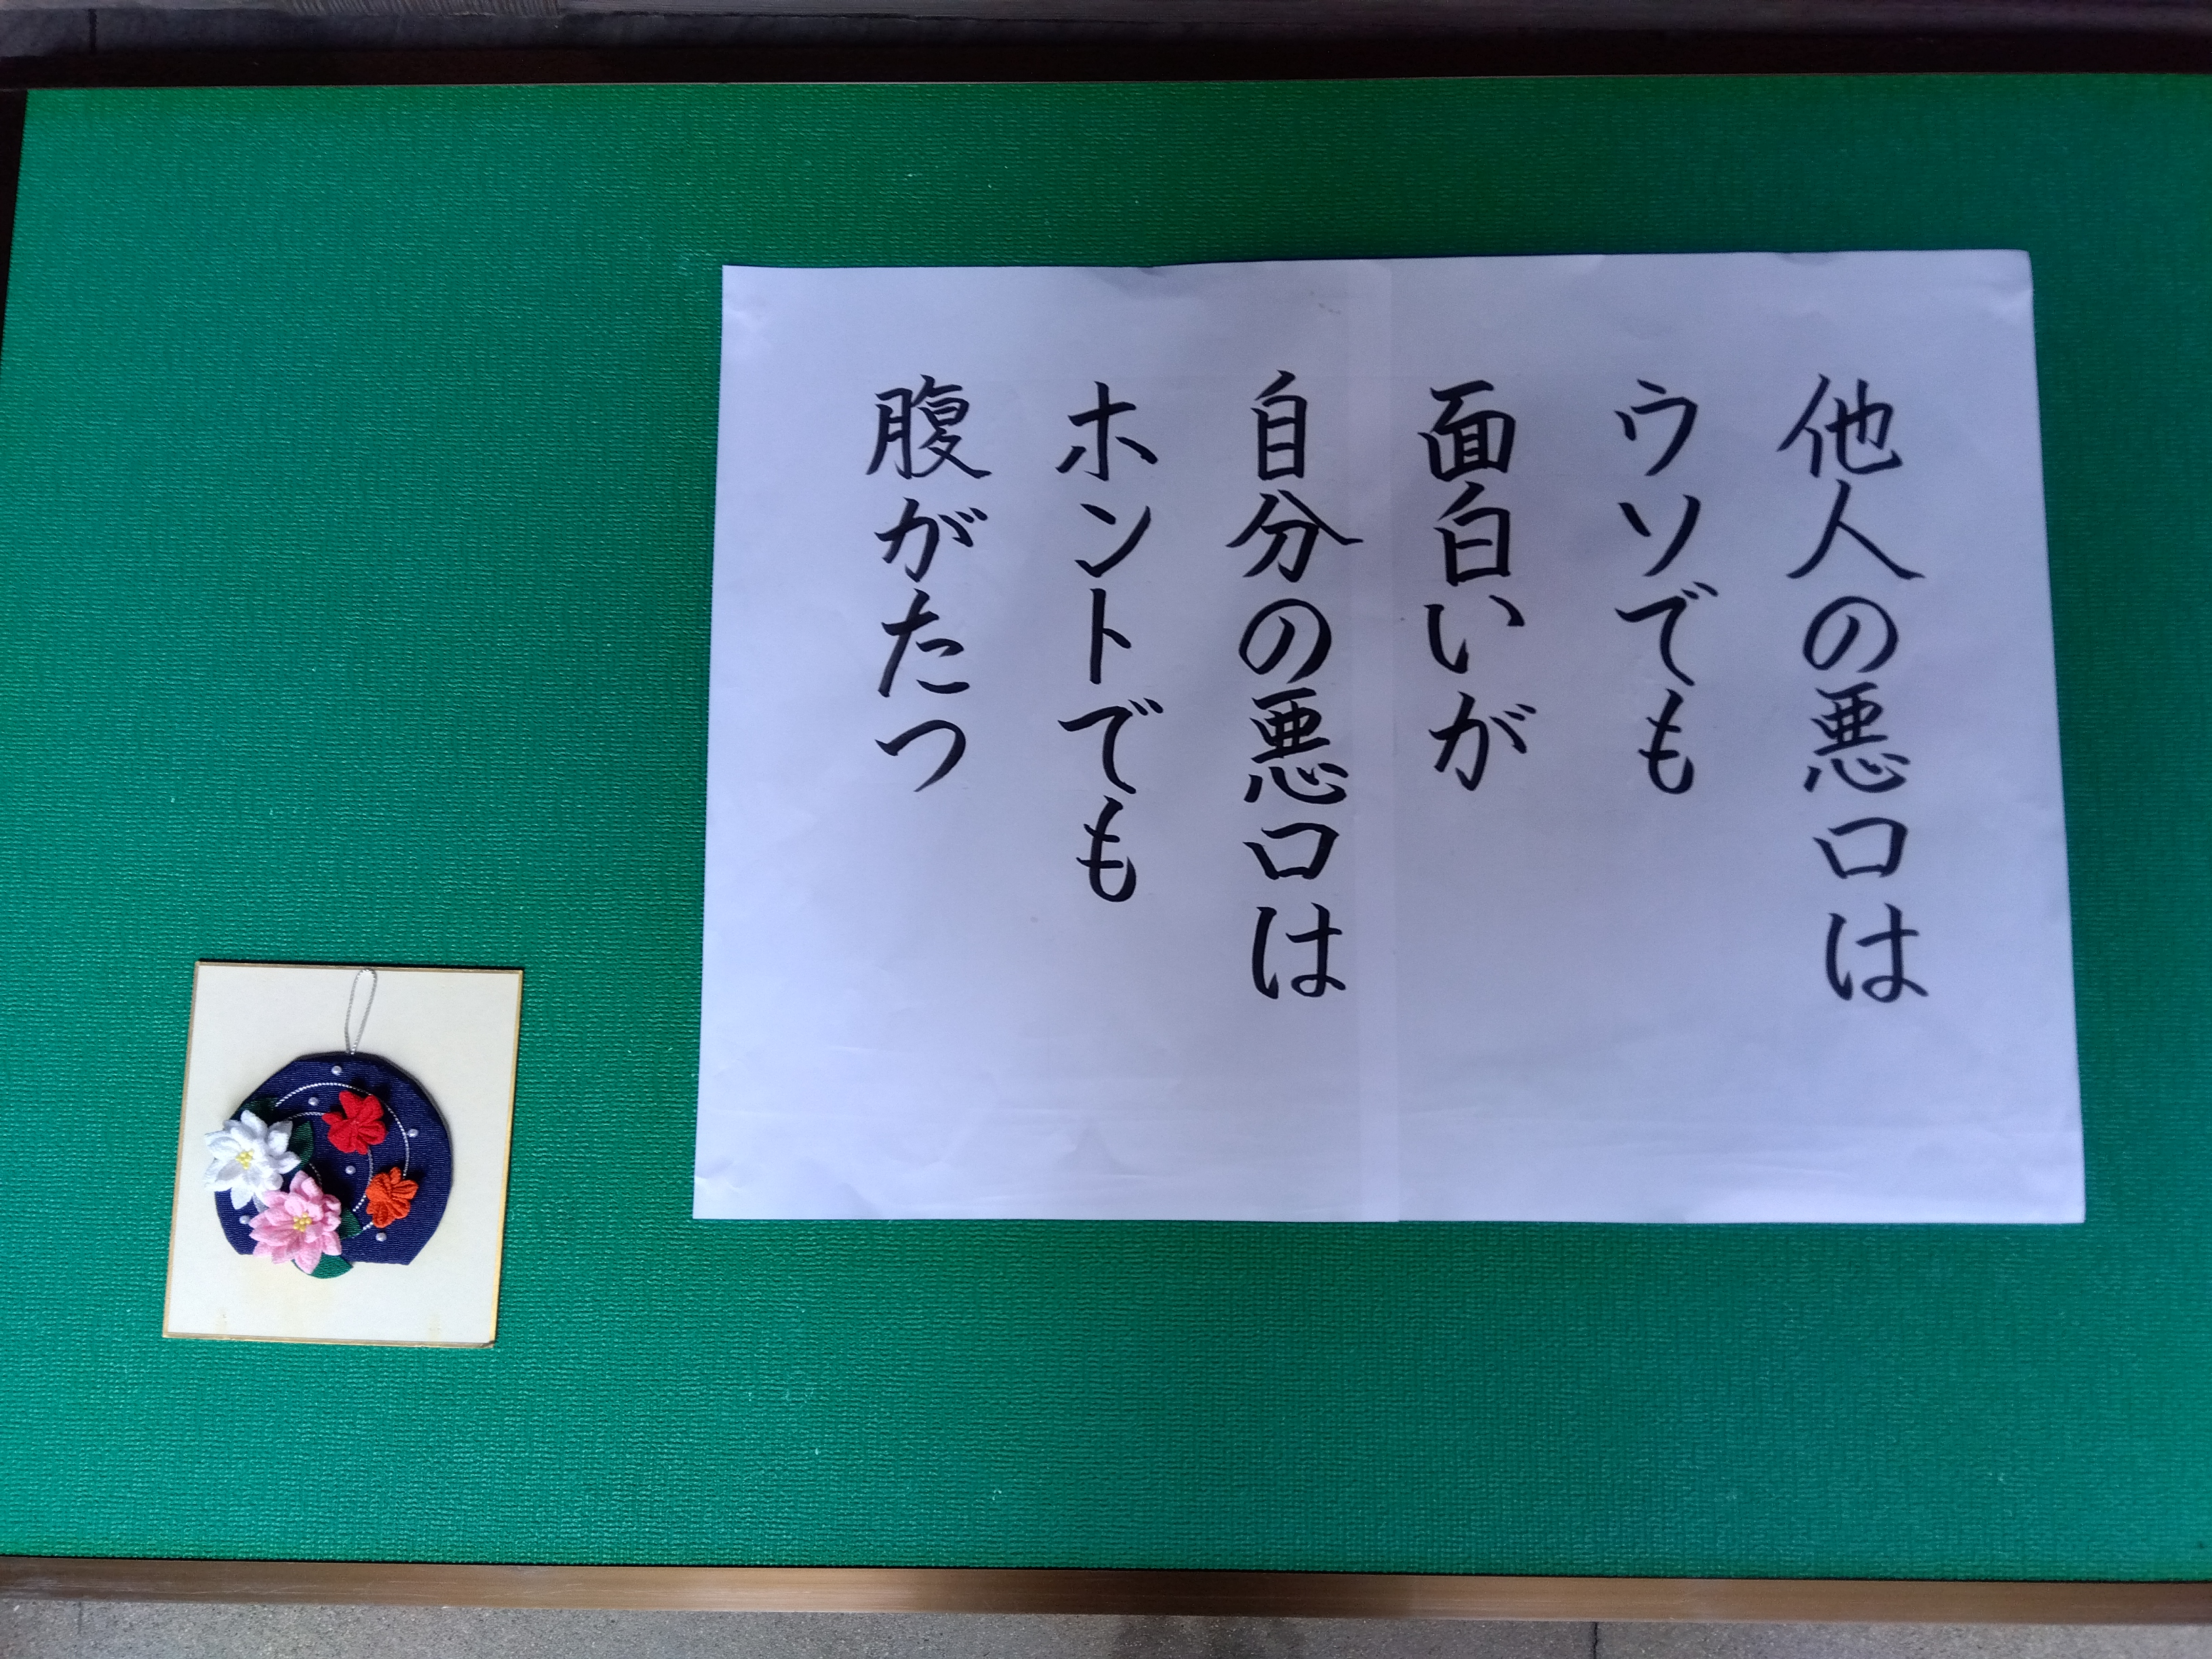 他人の悪口は
ウソでも
面白いが
自分の悪口は
ホントでも
腹がたつ